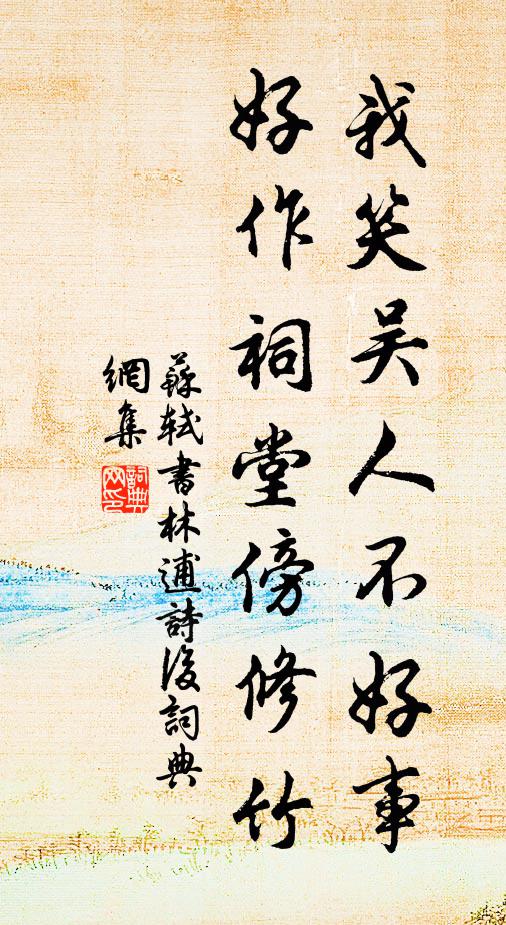 我笑吴人不好事
好作祠堂傍修竹
蘇軾書林逋詩後詞典
網集
詞典网印